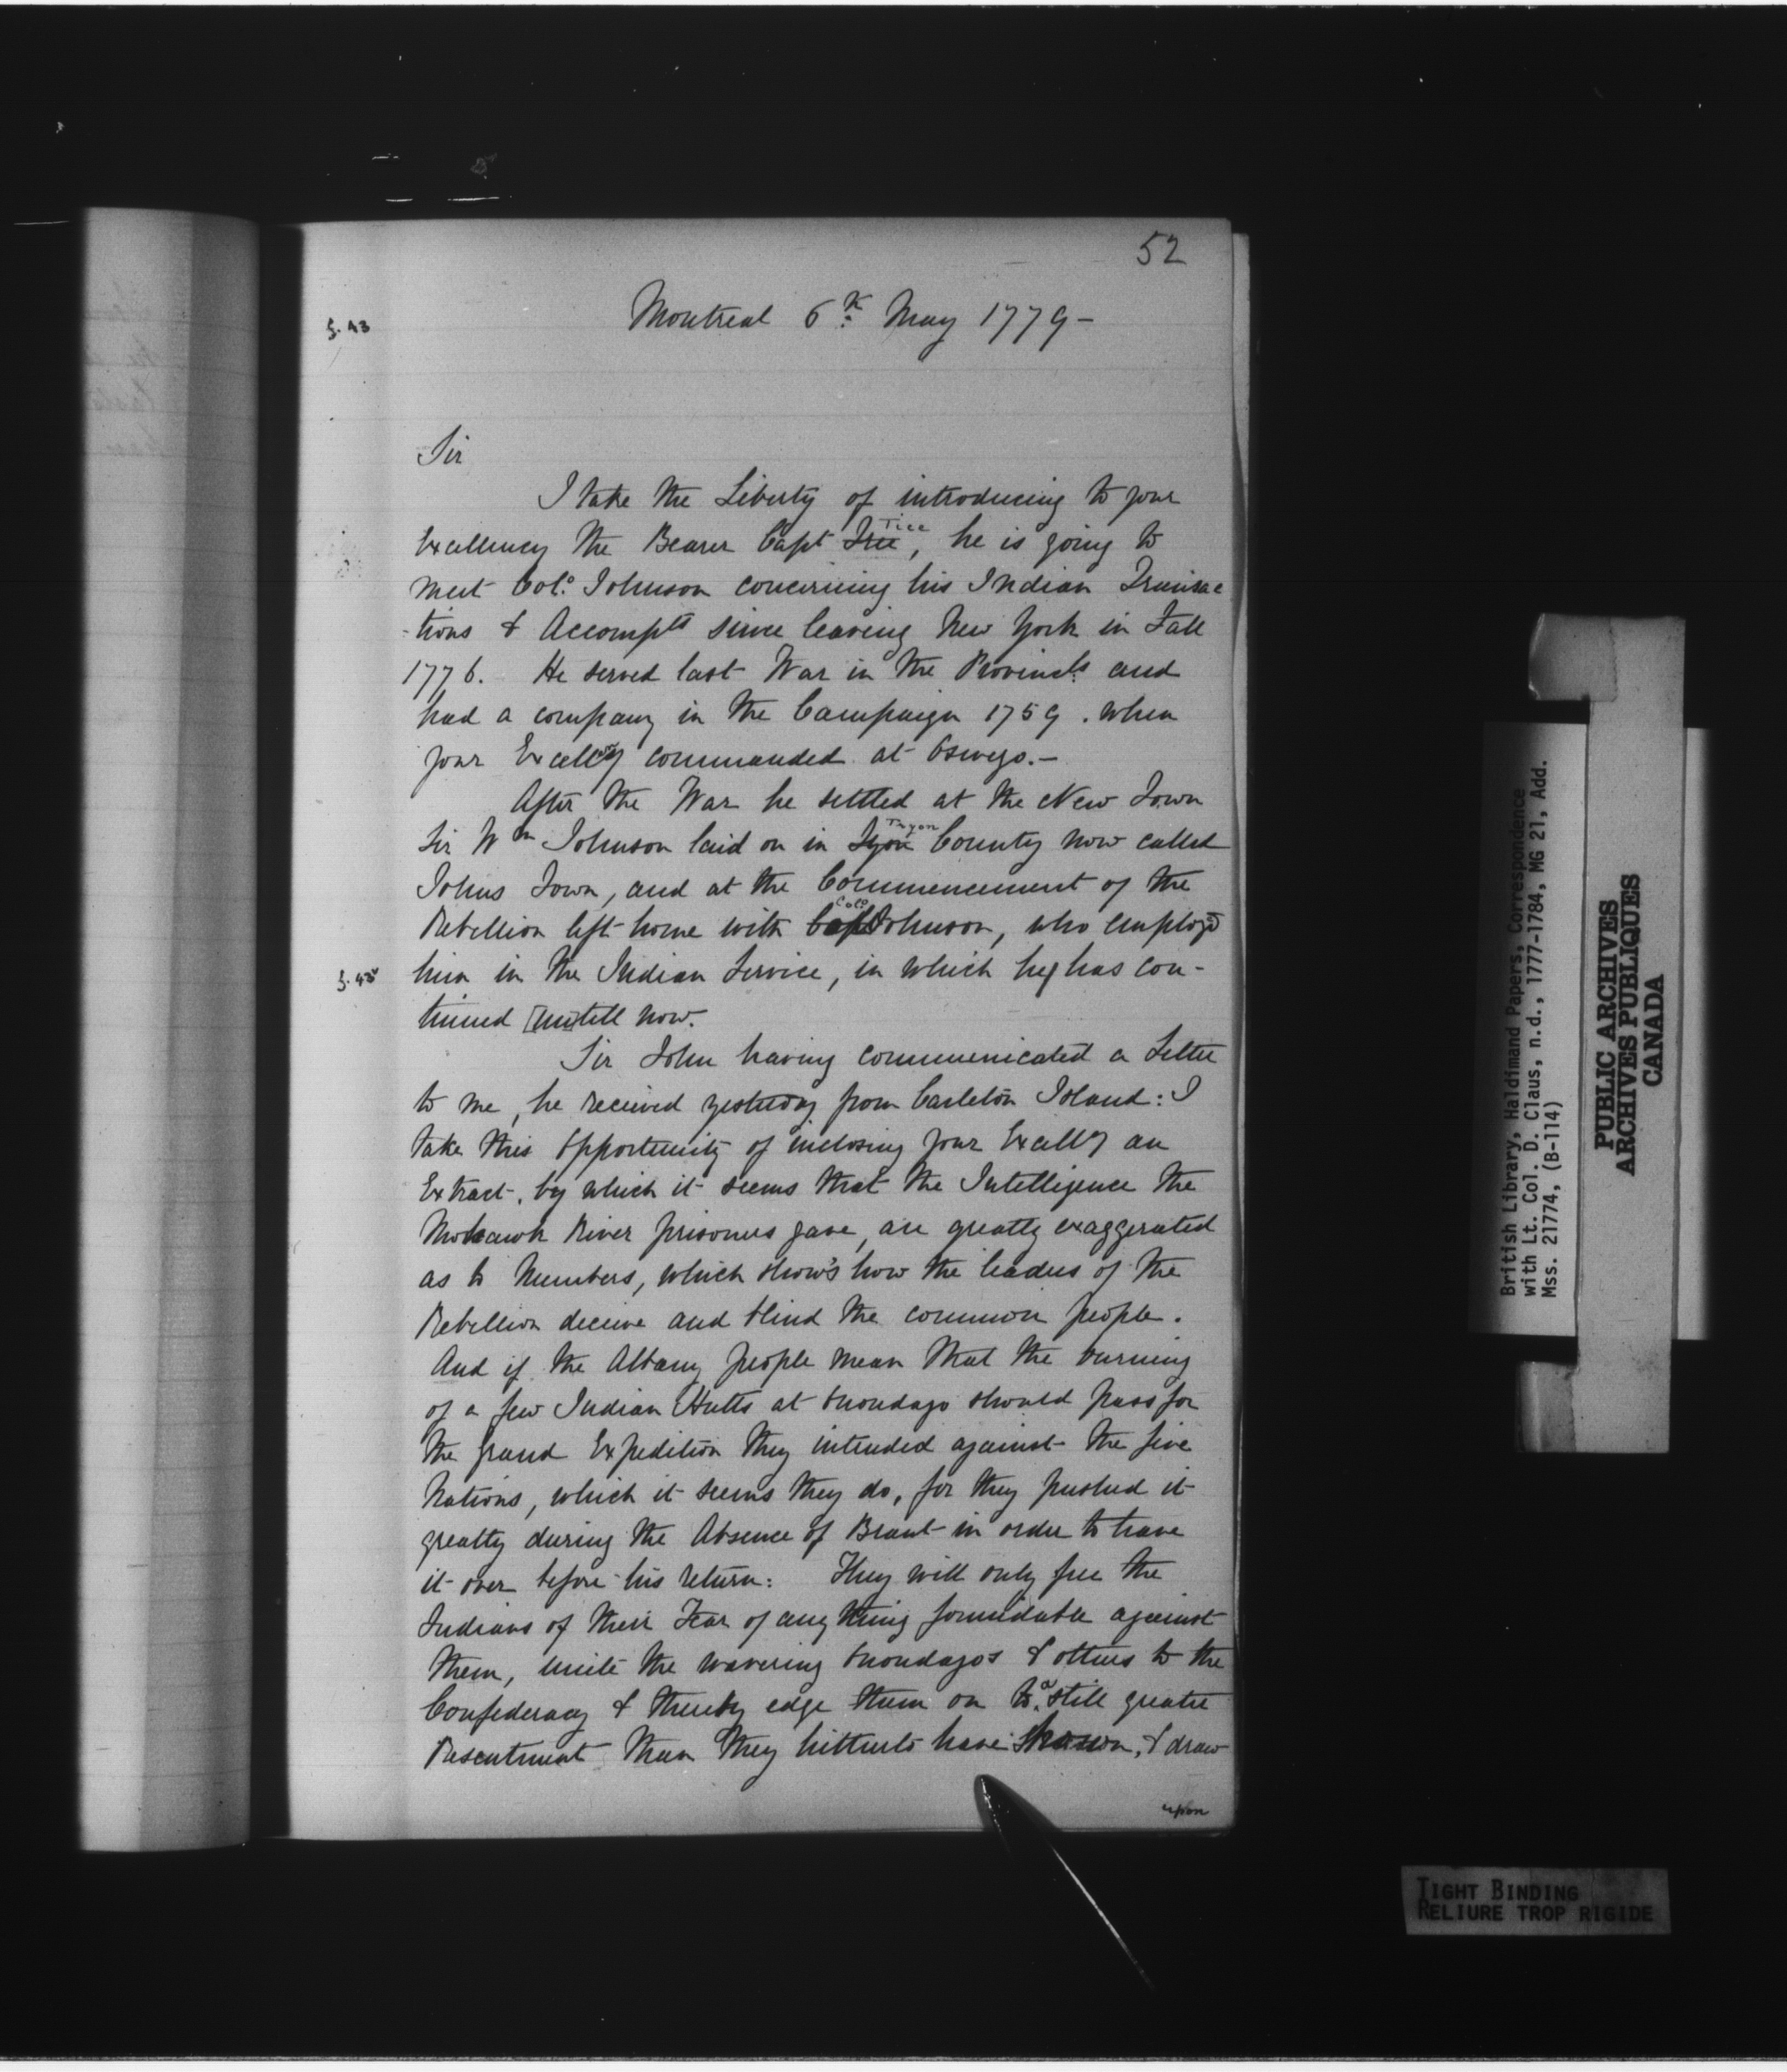 52
Montreal 6th May 1779 -
Sir
I take the Liberty of introducing to your
Excellency the Bearer Capt Tice, he is going to
meet Col.o Johnson concerning his Indian Transac
-tions & Accompts since leaving New York in Fall
1776. He served last War in the Provincls and
had a company in the Campaign 1759. when
your Excellcy commanded at Oswego.-
After the War he settled at the New Town
Sir Wm Johnson laid on in Tryon County now called
Johns Town, and at the Commencement of the
Rebellion left home with Colo Johnson, who employ'd
him in the Indian Service, in which he has con-
tinued [un]till now.
Sir John having communicated a Letter
to me, he received yesterday from Carleton Island: I
take this Opportunity of inclosing your Excelly an
Extract, by which it seems that the Intelligence the
Mohawk River prisoners gave, are greatly exaggerated
as to Numbers, which show's how the leaders of the
Rebellion deceive and blind the common people.
And if the Albany people mean that the burning
of a few Indian Hutts at Onondago should pass for
the grand Expedition they intended against the five
Nations, which it seems they do, for they pushed it
greatly during the Absence of Brant in order to have
it over before his return: They will only free the
Indians of their Fear of any thing formidable against
them, unite the wavering Onondagos & others to the
Confederacy & thereby edge them on to a still greater
Resentment than they hitherto have shown, & draw
upon
British Library, Haldimand Papers, Correspondence
with Lt. Col. D. Claus, n.d., 1777-1784, MG 21, Add.
Mss. 21774, (B-114)
PUBLIC ARCHIVES
ARCHIVES PUBLIQUES
CANADA
TIGHT BINDING
RELIURE TROP RIGIDE